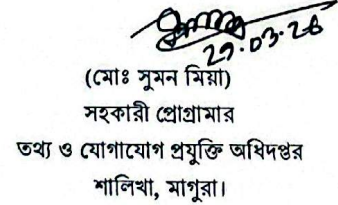 29.03.26
(মোঃ সুমন মিয়া)
সহকারী প্রোগ্রামার
তথ্য ও যোগাযোগ প্রযুক্তি অধিদপ্তর
শালিখা, মাগুরা।